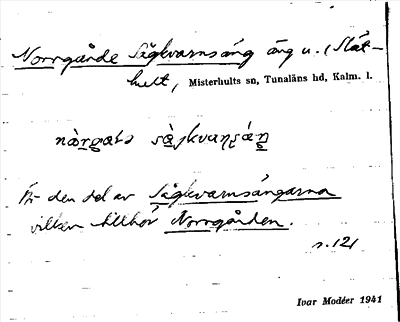 Norrgårde Sågkvarnsäng äng u. (Slät-
hult, Misterhults sn, Tunaläns hd, Kalm. l.
nàrgatə sàgkvaṇṣáŋ
Är den del av Sågkvarnsängarna
vilken tillhör Norrgården.
s. 121
Ivar Modéer 1941